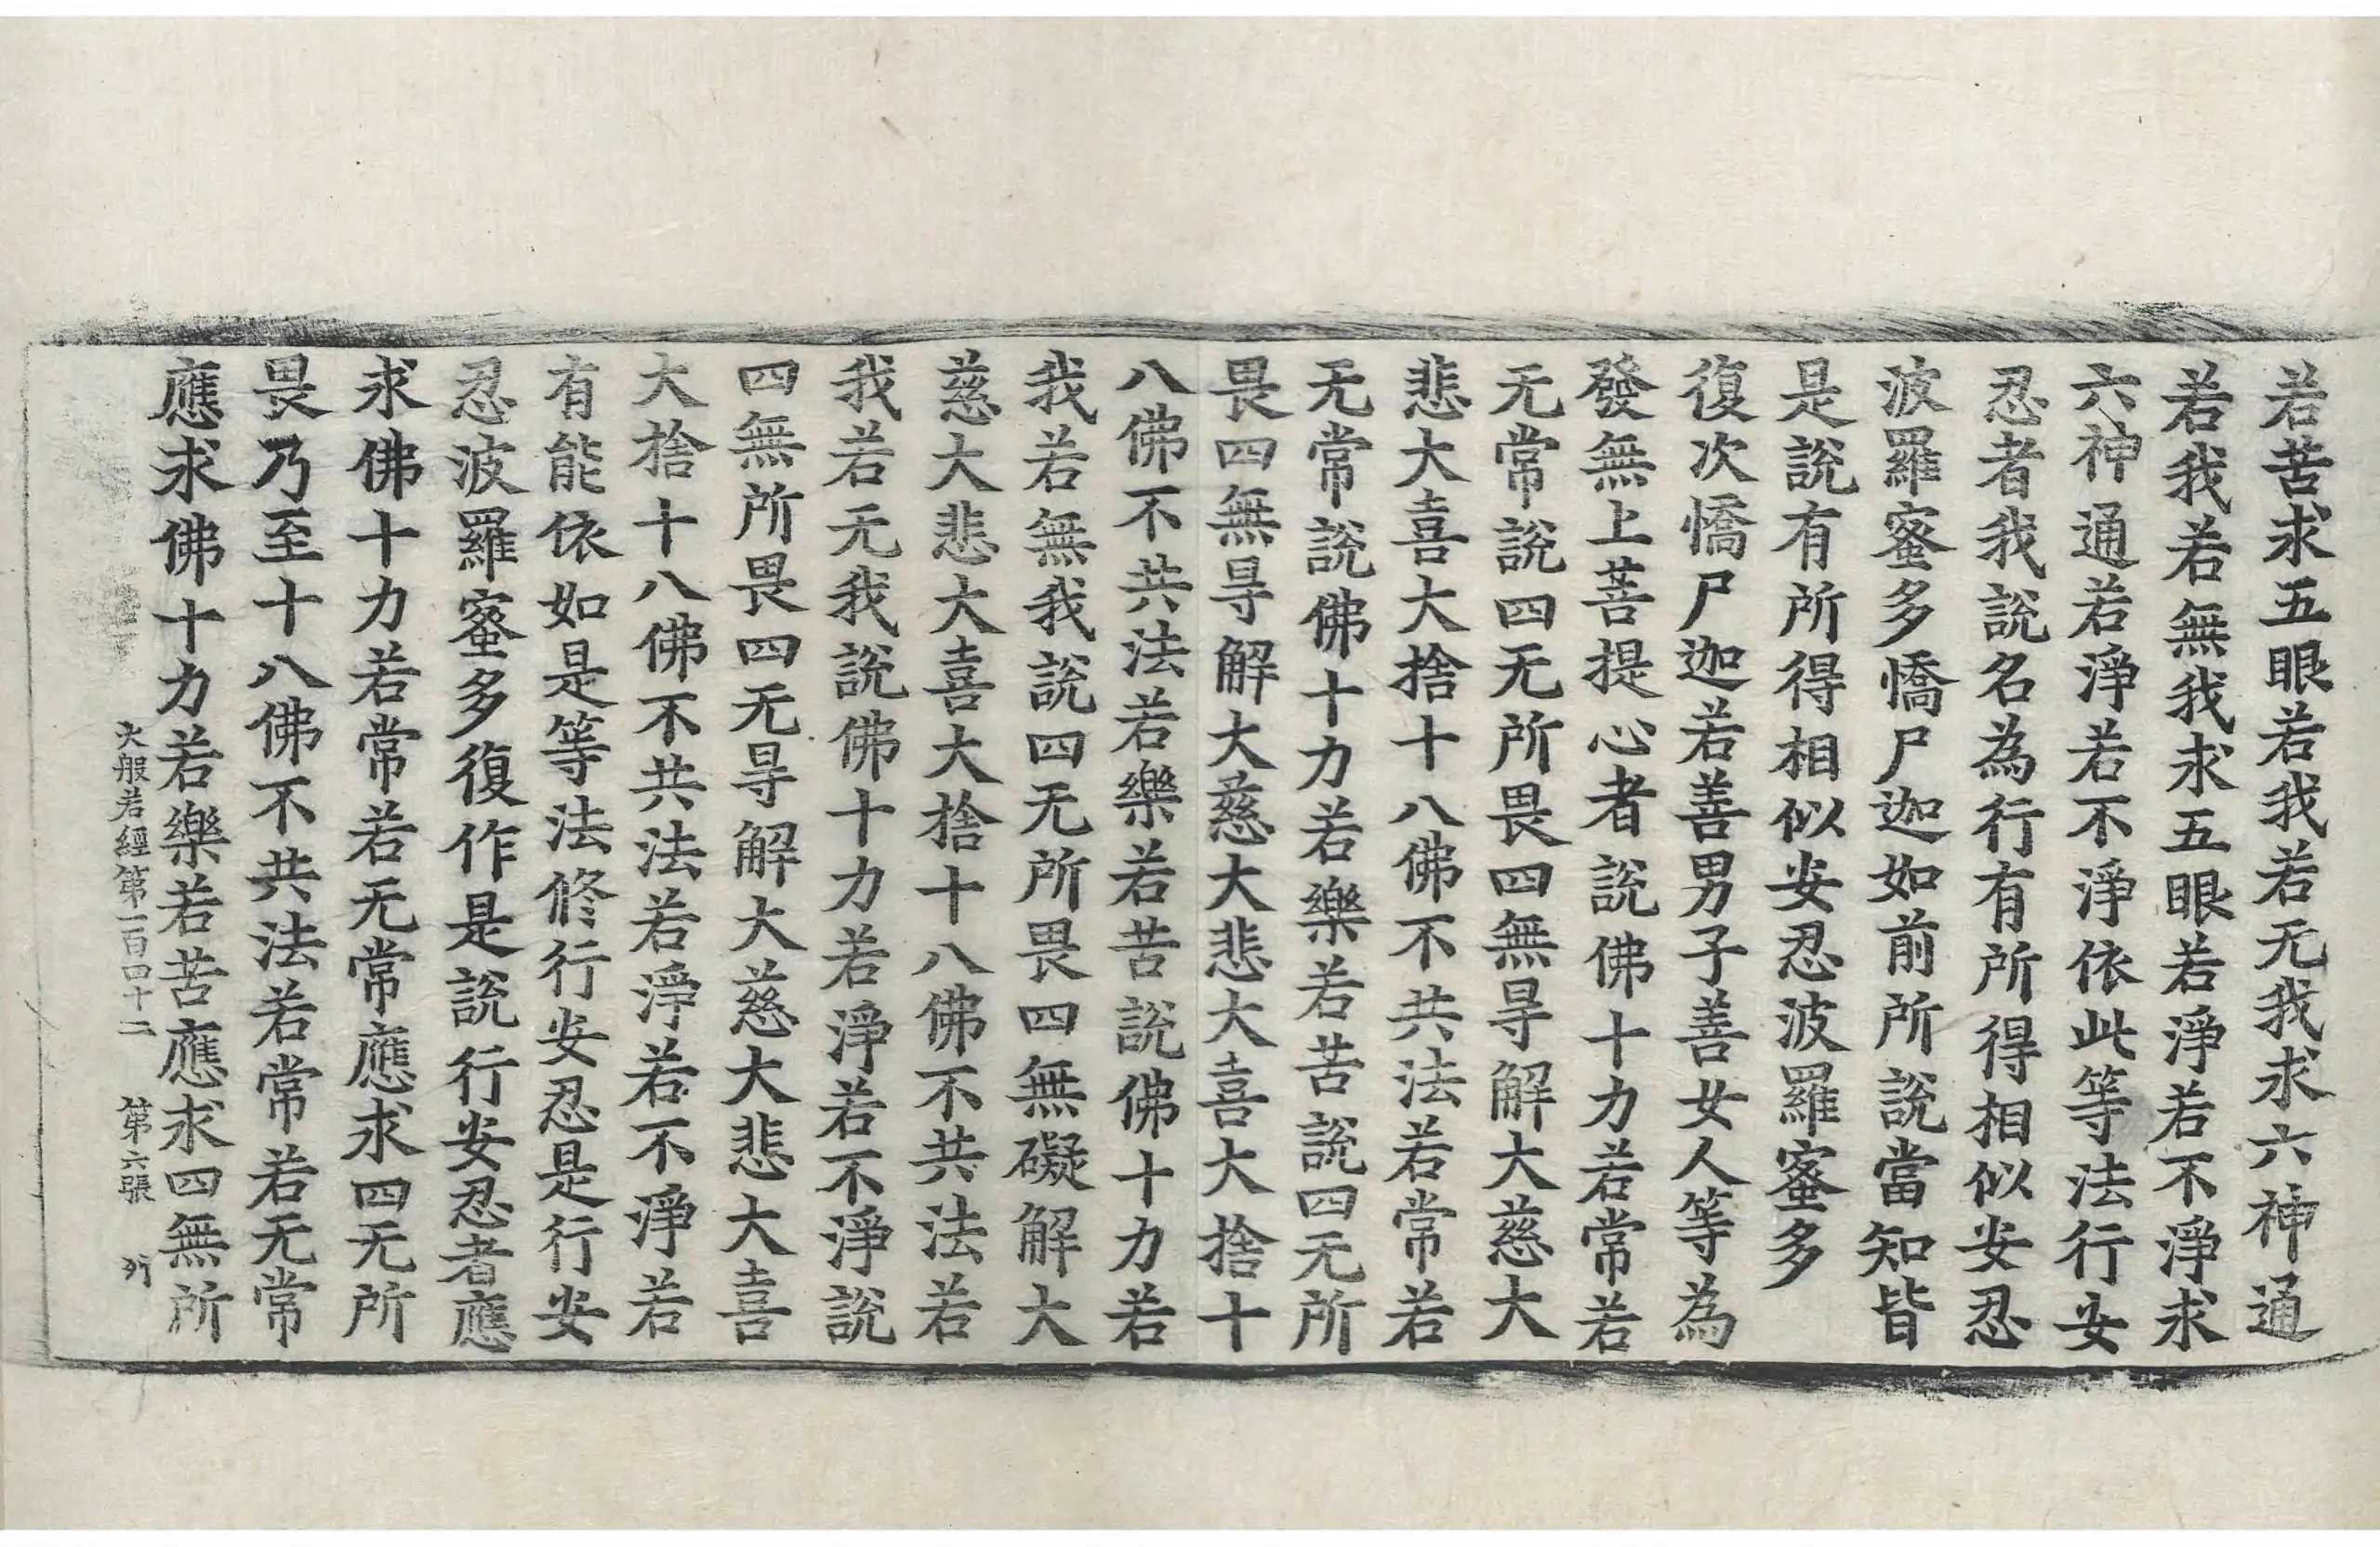 若苦求五眼若我若无我求六神通
若我若無我求五眼若淨若不淨求
六神通若淨若不淨依此等法行安
忍者我說名為行有所得相似安忍
波羅蜜多憍尸迦如前所說當知皆
是說有所得相似安忍波羅蜜多
復次憍尸迦若善男子善女人等為
發無上菩提心者說佛十力若常若
无常說四无所畏四無㝵解大慈大
悲大喜大捨十八佛不共法若常若
无常說佛十力若樂若苦說四无所
畏四無㝵解大慈大悲大喜大捨十
八佛不共法若樂若苦說佛十力若
我若無我說四无所畏四無礙解大
慈大悲大喜大捨十八佛不共法若
我若无我說佛十力若淨若不淨說
四無所畏四无㝵解大慈大悲大喜
大捨十八佛不共法若淨若不淨若
有能依如是等法修行安忍是行安
忍波羅蜜多復作是說行安忍者應
求佛十力若常若无常應求四无所
畏乃至十八佛不共法若常若无常
應求佛十力若樂若苦應求四無所
大般若經第一百四十二 第六張